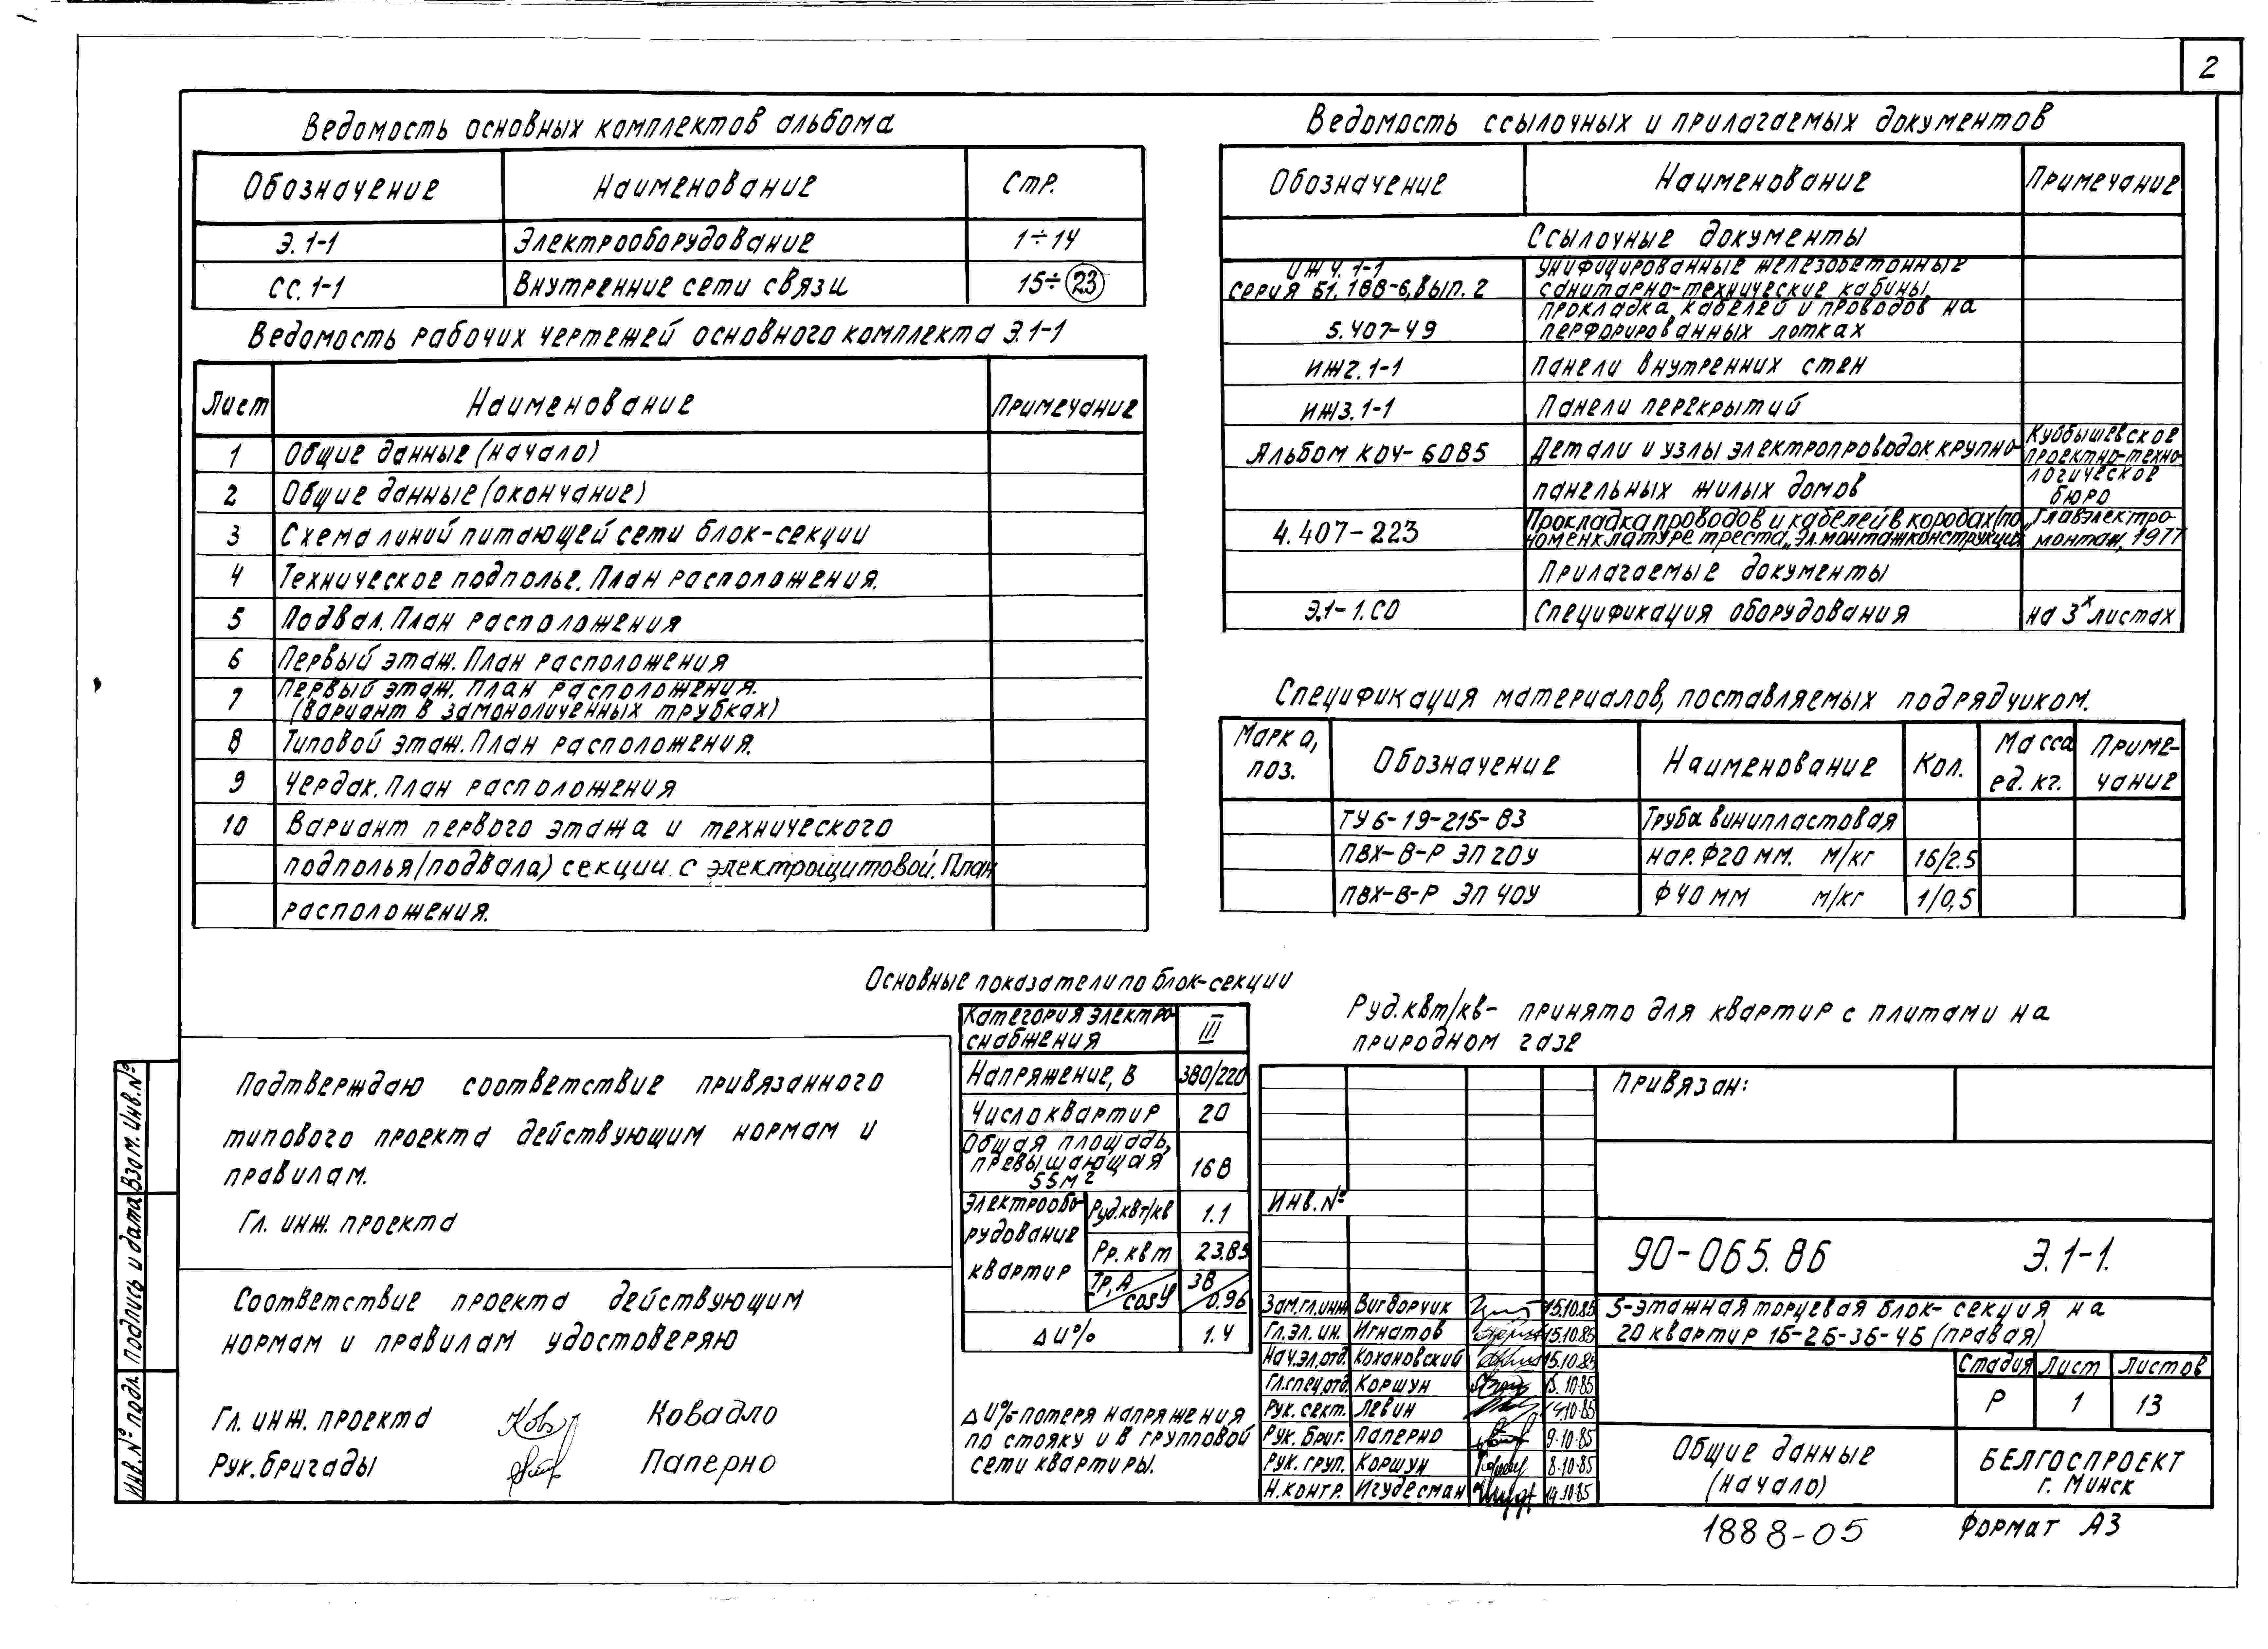 2
Ведомость основных комплектов альбома
Обозначение Наименование Стр.
Э.1-1 Электрооборудование 1÷14
СС.1-1 Внутренние сети связи 15÷23
Ведомость рабочих чертежей основного комплекта Э.1-1
Лист Наименование Примечание
1 Общие данные (начало)
2 Общие данные (окончание)
3 Схема линий питающей сети блок-секции
4 Техническое подполье. План расположения.
5 Подвал. План расположения
6 Первый этаж. План расположения
7 Первый этаж. План расположения.
(вариант в замоноличенных трубках)
8 Типовой этаж. План расположения.
9 Чердак. План расположения
10 Вариант первого этажа и технического
подполья (подвала) секции с электрощитовой. План
расположения.
Ведомость ссылочных и прилагаемых документов
Обозначение Наименование Примечание
Ссылочные документы
ИЖ4.1-1 Унифицированные железобетонные
серия Б1.188-6, вып. 2 санитарно-технические кабины
Прокладка кабелей и проводов на
5.407-49 перфорированных лотках
ИЖ2.1-1 Панели внутренних стен
ИЖ3.1-1 Панели перекрытий
Альбом КОЧ-6085 Детали и узлы электропроводок крупно-
панельных жилых домов
Куйбышевское
проектно-техно-
логическое
бюро
4.407-223 Прокладка проводов и кабелей в коробах (по
номенклатуре треста „Эл.монтажконструкция
„Главэлектро-
монтаж, 1977
Прилагаемые документы
Э.1-1.СО Спецификация оборудования на 3х листах
Спецификация материалов, поставляемых подрядчиком.
Марка, поз. Обозначение Наименование Кол. Масса ед. кг. Приме-чание
ТУ 6-19-215-83 Труба винипластовая
ПВХ-В-Р ЭП 20У нар. Ф20 мм. м/кг 16/2.5
ПВХ-В-Р ЭП 40У Ф40 мм м/кг 1/0,5
Основные показатели по блок-секции
Категория электро-
снабжения III
Напряжение, В 380/220
Число квартир 20
Общая площадь,
превышающая
55м2 168
Электрообо-
рудование
квартир
Руд.квт/кв 1.1
Рр. квт 23.85
Iр, А/cosφ 38/0.96
ΔU% 1.4
ΔU%-потеря напряжения
по стояку и в групповой
сети квартиры.
Руд.квт/кв- принято для квартир с плитами на
природном газе
Подтверждаю соответствие привязанного
типового проекта действующим нормам и
правилам.
Гл. инж. проекта
Соответствие проекта действующим
нормам и правилам удостоверяю
Гл. инж. проекта Ковадло
Рук. бригады Паперно
Взам. Инв.№
Подпись и дата
Инв.№ подл.
Привязан:
Инв.№
90-065.86 Э.1-1.
Зам.гл.инж Вигдорчик 15.10.85
Гл.эл.ин. Игнатов 15.10.85
Нач.эл.отд. Кохановский 15.10.85
Гл.спец.отд. Коршун 15.10.85
Рук. сект. Левин 14.10.85
Рук. бриг. Паперно 9.10.85
Рук. груп. Коршун 8.10.85
Н.контр. Игудесман 14.10.85
5-этажная торцевая блок-секция на
20 квартир 1Б-2Б-3Б-4Б (правая)
Стадия Лист Листов
Р 1 13
Общие данные
(начало)
БЕЛГОСПРОЕКТ
г. Минск
1888-05
Формат А3